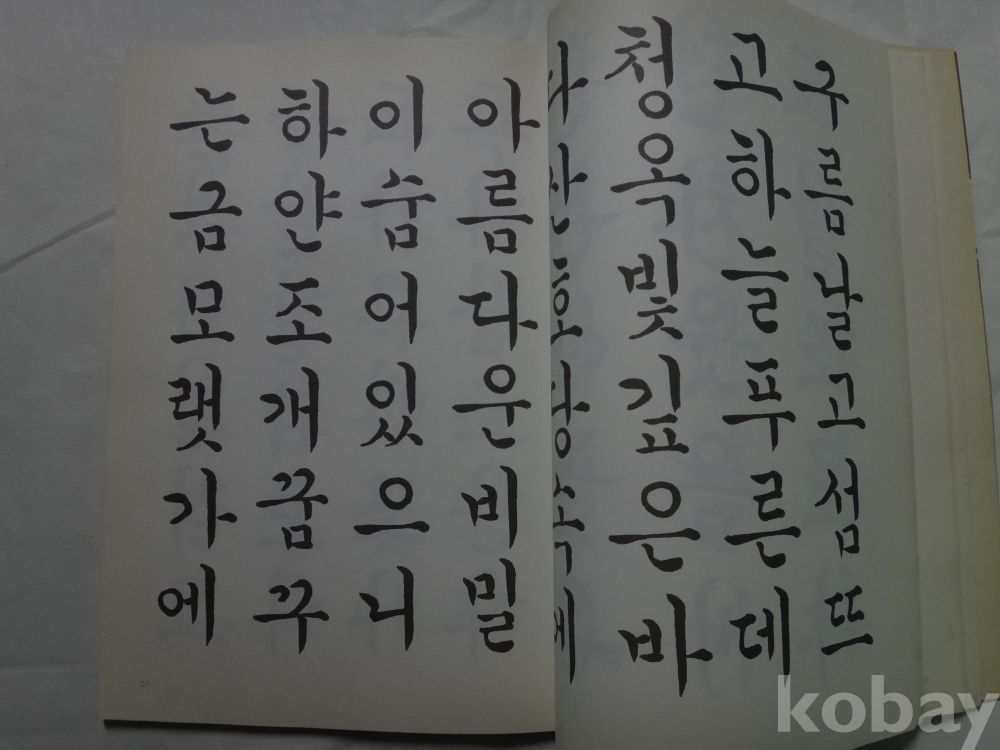 구름날고섬뜨
고하늘푸른데
청옥빛깊은바
아름다운비밀
이숨어있으니
하얀조개꿈꾸
는금모랫가에
kobay